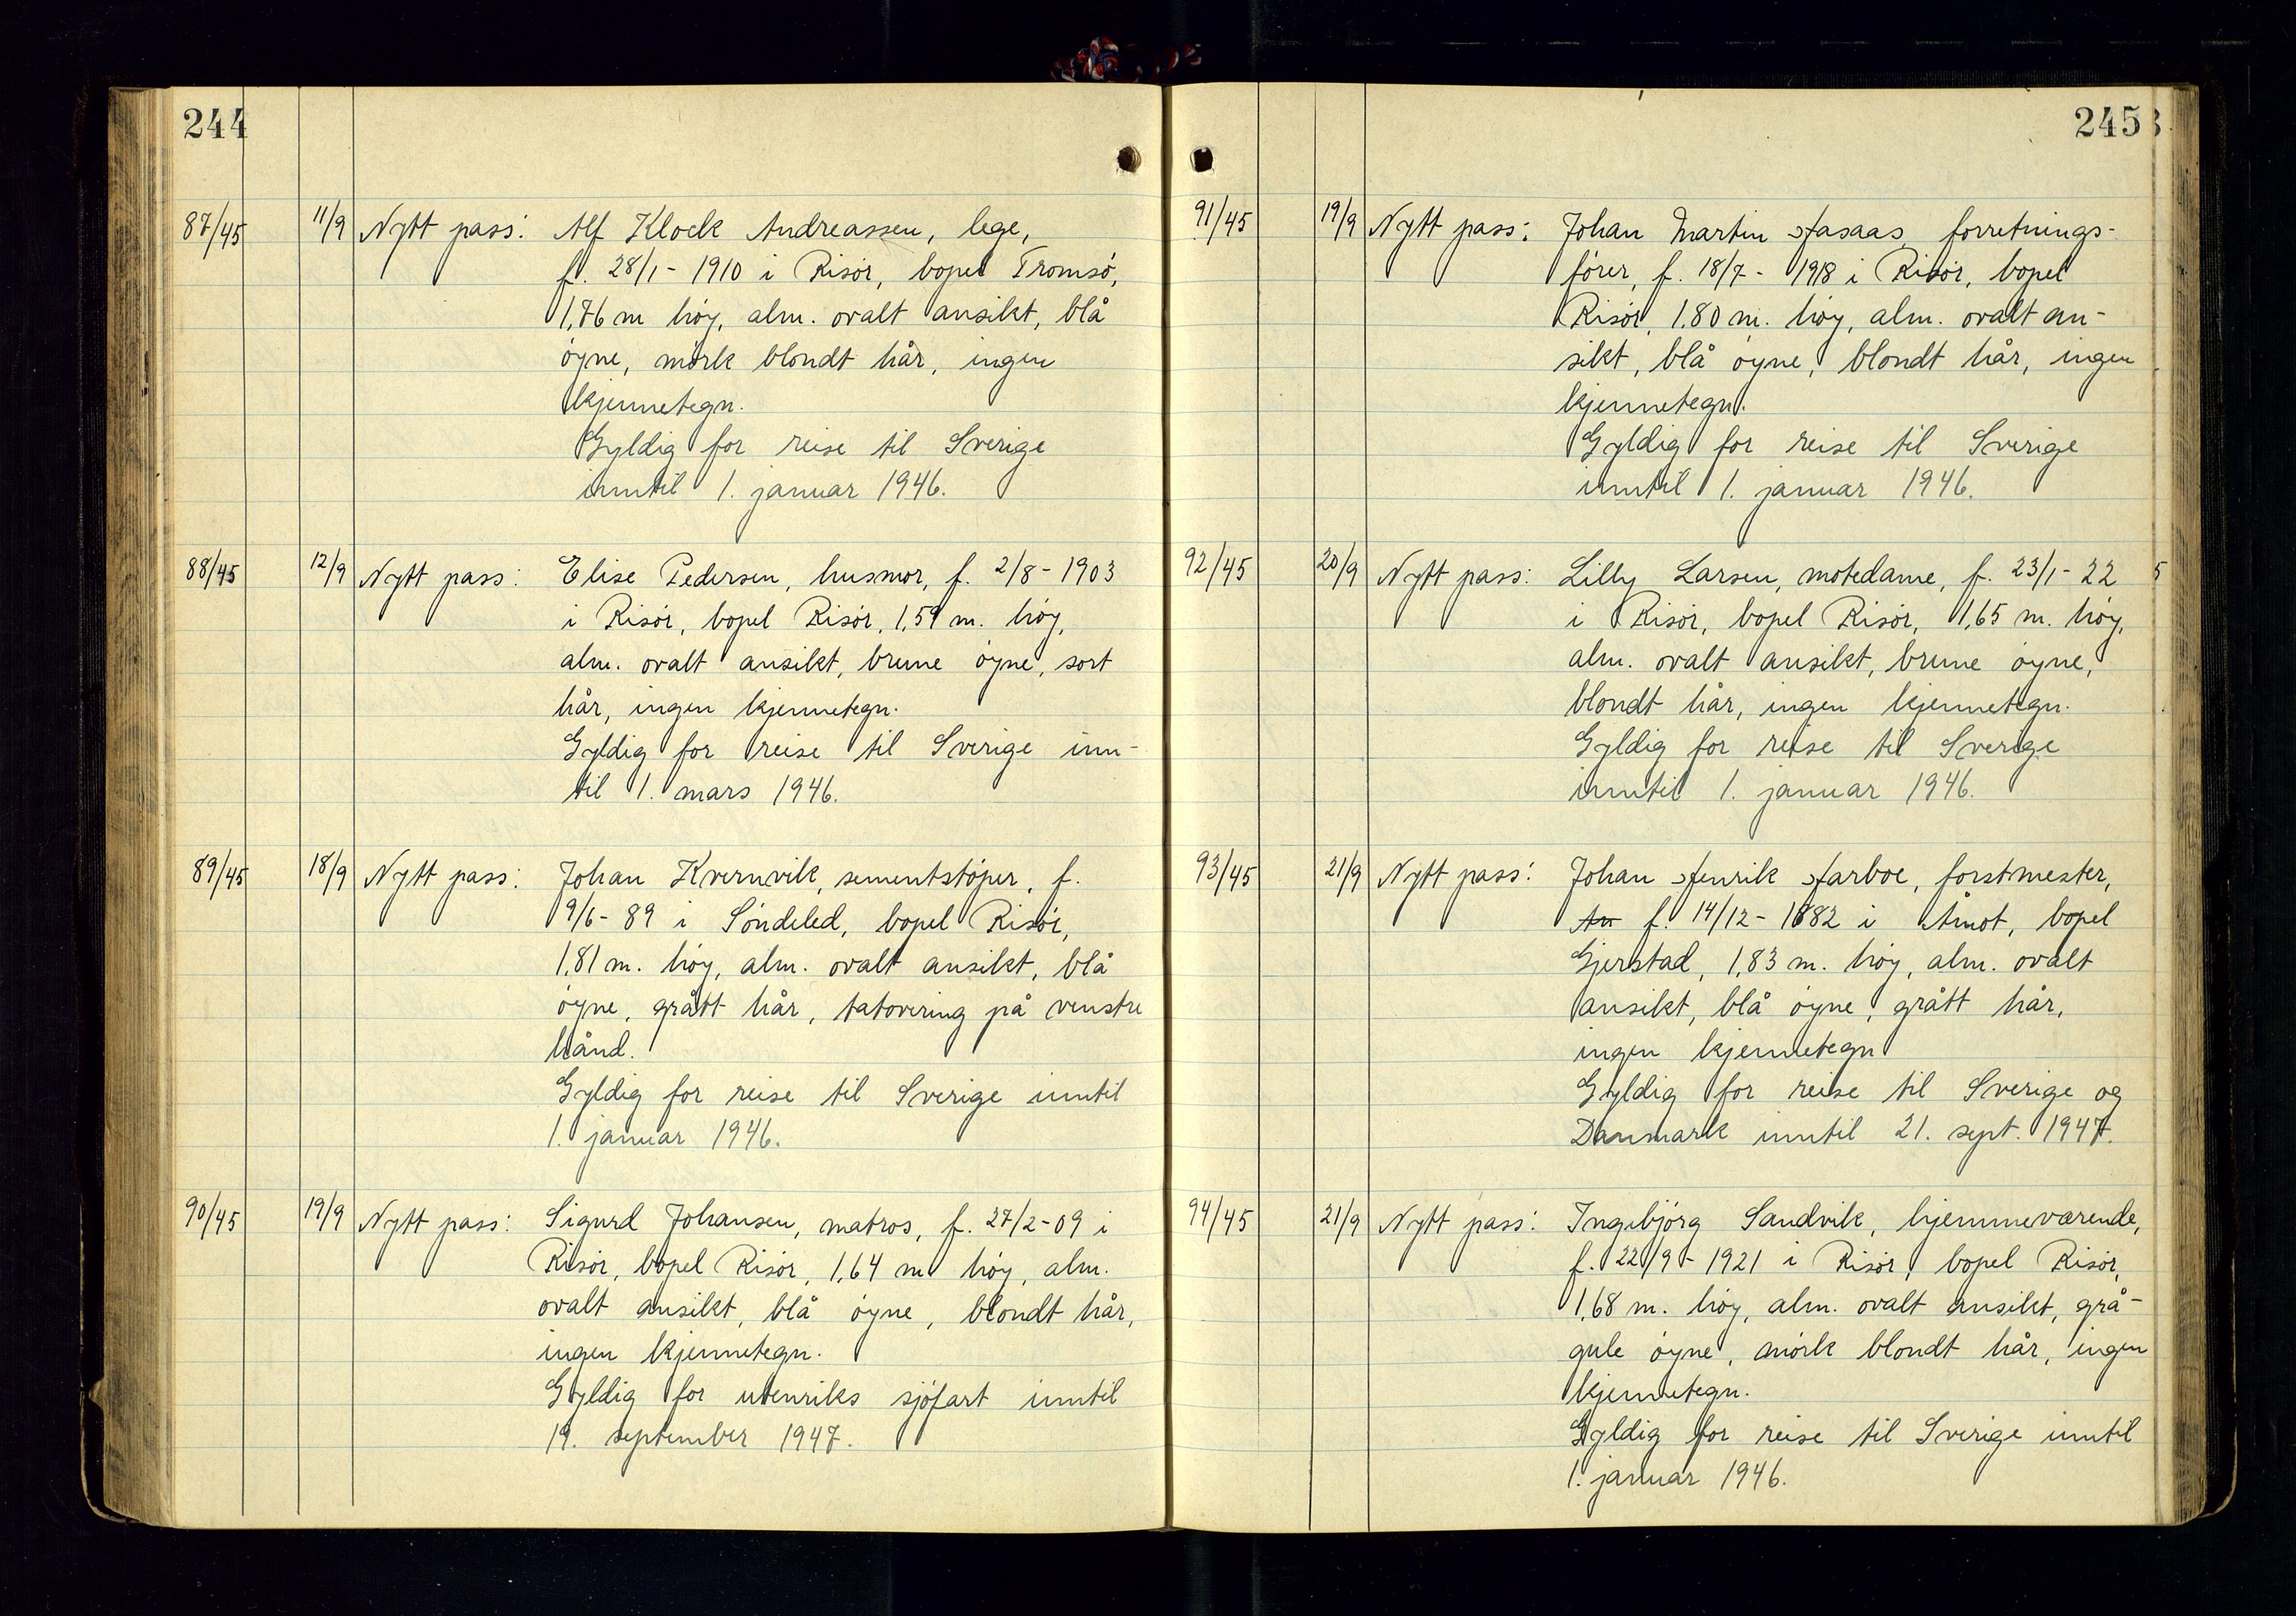 244
87/45 11/9 Nytt pass: Alf Klock Andreassen, lege,
f. 28/1 - 1910 i Risör, bopel Tromsö,
1,76 m höy, alm. ovalt ansikt, blå
öyne, mörk blondt hår, ingen
kjennetegn.
Gyldig for reise til Sverige
inntil 1. januar 1946.
88/45 12/9 Nytt pass: Elise Pedersen, husmor, f. 2/8 - 1903
i Risör, bopel Risör, 1,59 m. höy,
alm. ovalt ansikt, brune öyne, sort
hår, ingen kjennetegn.
Gyldig for reise til Sverige inn-
til 1. mars 1946.
89/45 18/9 Nytt pass: Johan Kvernvik, sementstöper, f.
9/6 - 89 i Söndeled, bopel Risör,
1,81 m. höy, alm. ovalt ansikt, blå
öyne, grått hår, tatovering på venstre
hånd.
Gyldig for reise til Sverige inntil
1. januar 1946.
90/45 19/9 Nytt pass: Sigurd Johansen, matros, f. 27/2 - 09 i
Risör, bopel Risör, 1,64 m höy, alm.
ovalt ansikt, blå öyne, blondt hår,
ingen kjennetegn.
Gyldig for utenriks sjöfart inntil
19. september 1947.
245
91/45 19/9 Nytt pass: Johan Martin Hasaas, forretnings-
förer, f. 18/7 - 1918 i Risör, bopel
Risör, 1,80 m. höy, alm. ovalt an-
sikt, blå öyne, blondt hår, ingen
kjennetegn.
Gyldig for reise til Sverige
inntil 1. januar 1946.
92/45 20/9 Nytt pass: Lilly Larsen, motedame, f. 23/1 - 22
i Risör, bopel Risör, 1,65 m. höy,
alm. ovalt ansikt, brune öyne,
blondt hår, ingen kjennetegn.
Gyldig for reise til Sverige
inntil 1. januar 1946.
93/45 21/9 Nytt pass: Johan Henrik Harboe, forstmester,
f. 14/12 - 1882 i Åmot, bopel
Gjerstad, 1,83 m. höy, alm. ovalt
ansikt, blå öyne, grått hår,
ingen kjennetegn
Gyldig for reise til Sverige og
Danmark inntil 21. sept. 1947.
94/45 21/9 Nytt pass: Ingebjörg Sandvik, hjemmeværende,
f. 22/9 - 1921 i Risör, bopel Risör,
1,68 m. höy, alm. ovalt ansikt, grå-
gule öyne, mörk blondt hår, ingen
kjennetegn.
Gyldig for reise til Sverige inntil
1. januar 1946.